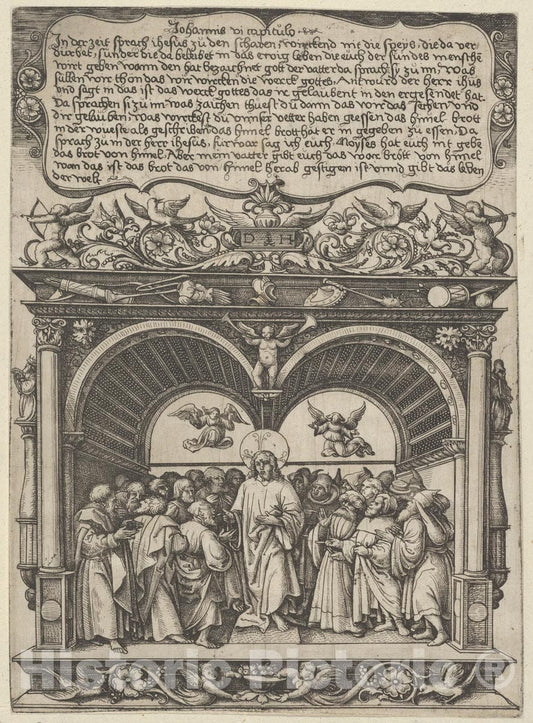 Johannis vi capitulo
In der zeit sprach ihesus zu den scharen, wirckend nit die speys, die da ver
dirbet, sunder die da beleibet in das ewig leben die euch der sun des menschē
wirt geben wann den hat bezaichnet gott der vatter da sprachē sy zu im, was
sullen wir thon das wir wircken die werck gottes, Antwurd der herre ihūs
vnd sagt in das ist das werck gottes das ir gelaubent in den er gesendet hat.
Da sprachen si zu im was zaichen thuest du dann das wir das sehen vnd
dir gelauben, was wirckest du vnnser vetter haben geessen das himel brott
in der wueste als geschriben das himel brott hat er in gegeben zu essen, Da
sprach zu in der herr ihesus, fur war sag ich euch Moyses hat euch nit gebē
das brot von himel Aber mein vatter gibt euch das wore brott von himel
wan das ist das brot das von himel herab gestigen ist vnnd gibt das leben
der welt
D H
Historic Pictoric ®